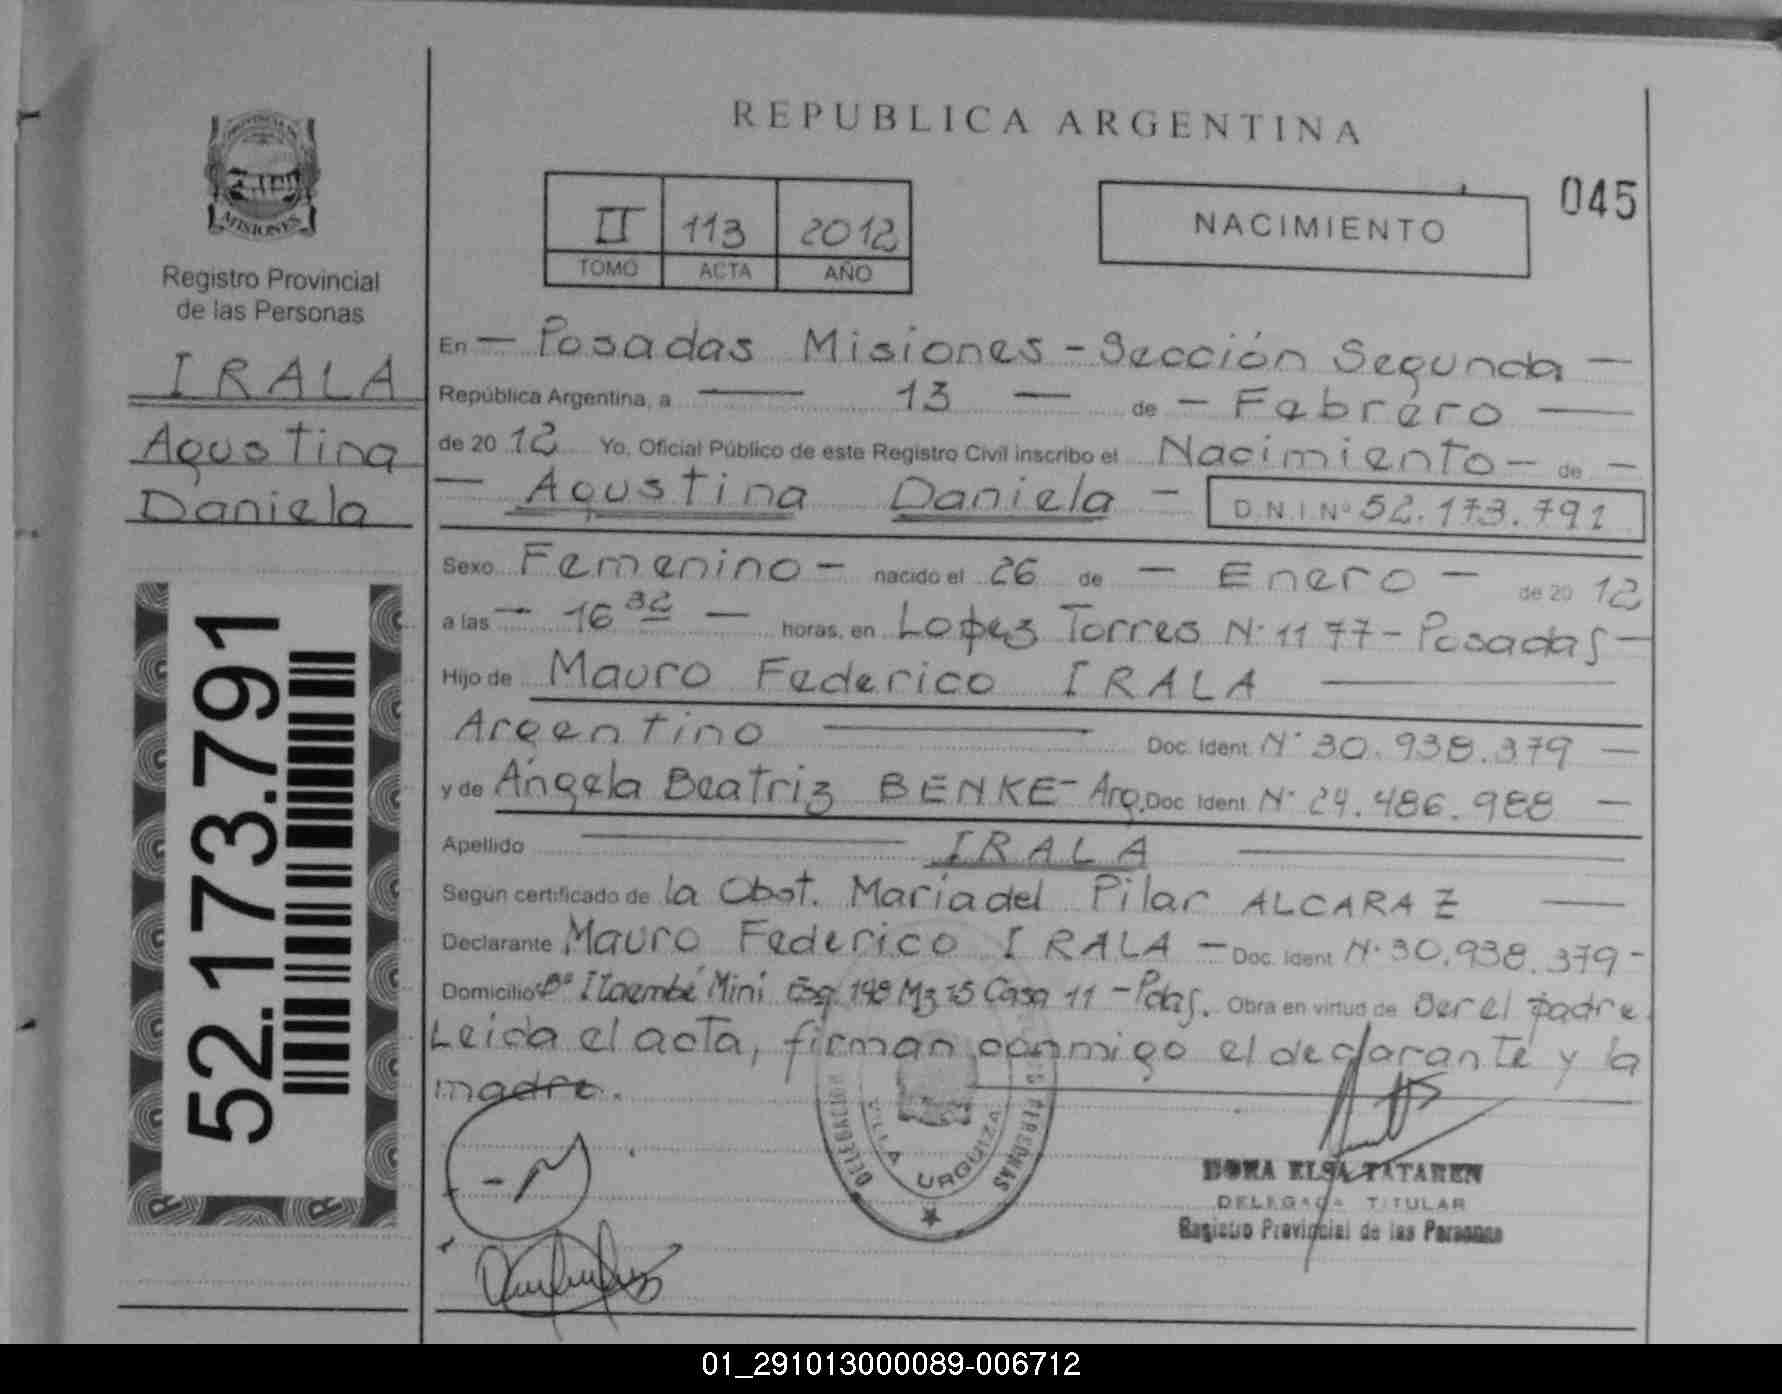 PROVINCIA DE
MISIONES
Registro Provincial
de las Personas
IRALA
Agustina
Daniela
52.173.791
REPUBLICA ARGENTINA
II 113 2012
TOMO ACTA AÑO
NACIMIENTO
045
En — Posadas Misiones - Sección Segunda —
República Argentina, a — 13 — de — Febrero —
de 2012 Yo, Oficial Público de este Registro Civil inscribo el Nacimiento — de —
— Agustina Daniela — D.N.I. Nº 52.173.791
Sexo Femenino — nacido el 26 de — Enero — de 2012
a las — 16 32 — horas, en Lopez Torres Nº 1177 - Posadas —
Hijo de Mauro Federico IRALA —
Argentino — Doc. Ident. Nº 30.938.379 —
y de Angela Beatriz BENKE - Arg. Doc. Ident. Nº 24.486.988 —
Apellido — IRALA —
Según certificado de la Obst. Maria del Pilar ALCARAZ —
Declarante Mauro Federico IRALA — Doc. Ident. Nº 30.938.379 -
Domicilio Bº Itaembé Mini Esq. 148 Mz 15 Casa 11 - Pdas. Obra en virtud de Ser el padre.
Leida el acta, firman conmigo el declarante y la
madre.
DELEGACION
VILLA URQUIZA
PERSONAS
DORA ELSA TATAREN
DELEGADA TITULAR
Registro Provincial de las Personas
01_291013000089-006712